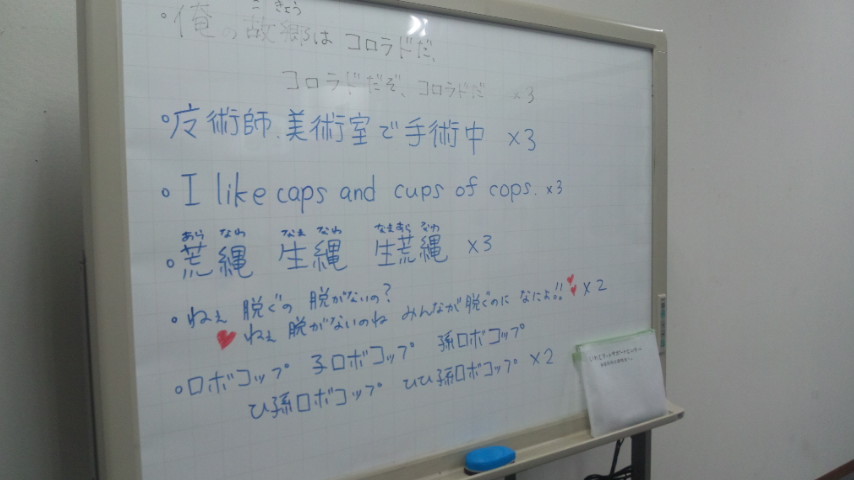 こきょう
・俺の故郷は コロラドだ、
コロラドだぞ、コロラドだ ×3
・魔術師、美術室で手術中 ×3
・I like caps and cups of cops. ×3
あら なわ なま なわ なまあら なわ
・荒縄 生縄 生荒縄 ×3
・ねぇ 脱ぐの 脱がないの?
ねぇ 脱がないのね みんなが脱ぐのに なによ!! ×2
・ロボコップ 子ロボコップ 孫ロボコップ
ひ孫ロボコップ ひひ孫ロボコップ ×2